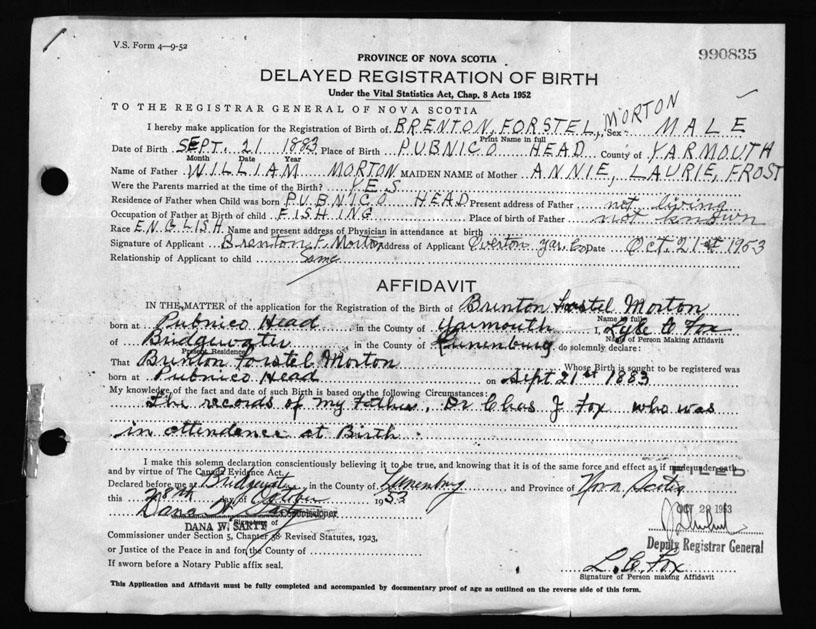 V.S. Form 4—9-52
990835
PROVINCE OF NOVA SCOTIA
DELAYED REGISTRATION OF BIRTH
Under the Vital Statistics Act, Chap. 8 Acts 1952
TO THE REGISTRAR GENERAL OF NOVA SCOTIA
I hereby make application for the Registration of Birth of BRENTON, FORSTEL, MORTON Sex MALE
Print Name in full
Date of Birth SEPT. 21 1883 Place of Birth PUBNICO HEAD County of YARMOUTH
Month Date Year
Name of Father WILLIAM MORTON MAIDEN NAME of Mother ANNIE, LAURIE, FROST
Were the Parents married at the time of the Birth? YES
Residence of Father when Child was born PUBNICO HEAD Present address of Father not living
Occupation of Father at Birth of child FISHING Place of birth of Father not known
Race ENGLISH Name and present address of Physician in attendance at birth
Signature of Applicant Brenton F. Morton Address of Applicant Overton Yar. Co Date Oct. 21st 1953
Relationship of Applicant to child Same
AFFIDAVIT
IN THE MATTER of the application for the Registration of the Birth of Brenton Forstel Morton
Name in full
born at Pubnico Head in the County of Yarmouth I, Lyle C Fox
Name of Person Making Affidavit
of Bridgewater in the County of Lunenburg do solemnly declare:
Present Residence
That Brenton Forstel Morton Whose Birth is sought to be registered was
born at Pubnico Head on Sept 21st 1883
My knowledge of the fact and date of such Birth is based on the following Circumstances:
The records of my Father, Dr Chas J Fox who was
in attendence at Birth.
I make this solemn declaration conscientiously believing it to be true, and knowing that it is of the same force and effect as if made under oath
and by virtue of The Canada Evidence Act.
FILED
Declared before me at Bridgewater in the County of Lunenburg and Province of Nova Scotia
this 28th day of October 1953
OCT 29 1953
Dana W Sarty Commissioner
Signature of
DANA W. SARTY
Deputy Registrar General
Commissioner under Section 5, Chapter 38 Revised Statutes, 1923,
or Justice of the Peace in and for the County of
L. C. Fox
If sworn before a Notary Public affix seal.
Signature of Person making Affidavit
This Application and Affidavit must be fully completed and accompanied by documentary proof of age as outlined on the reverse side of this form.